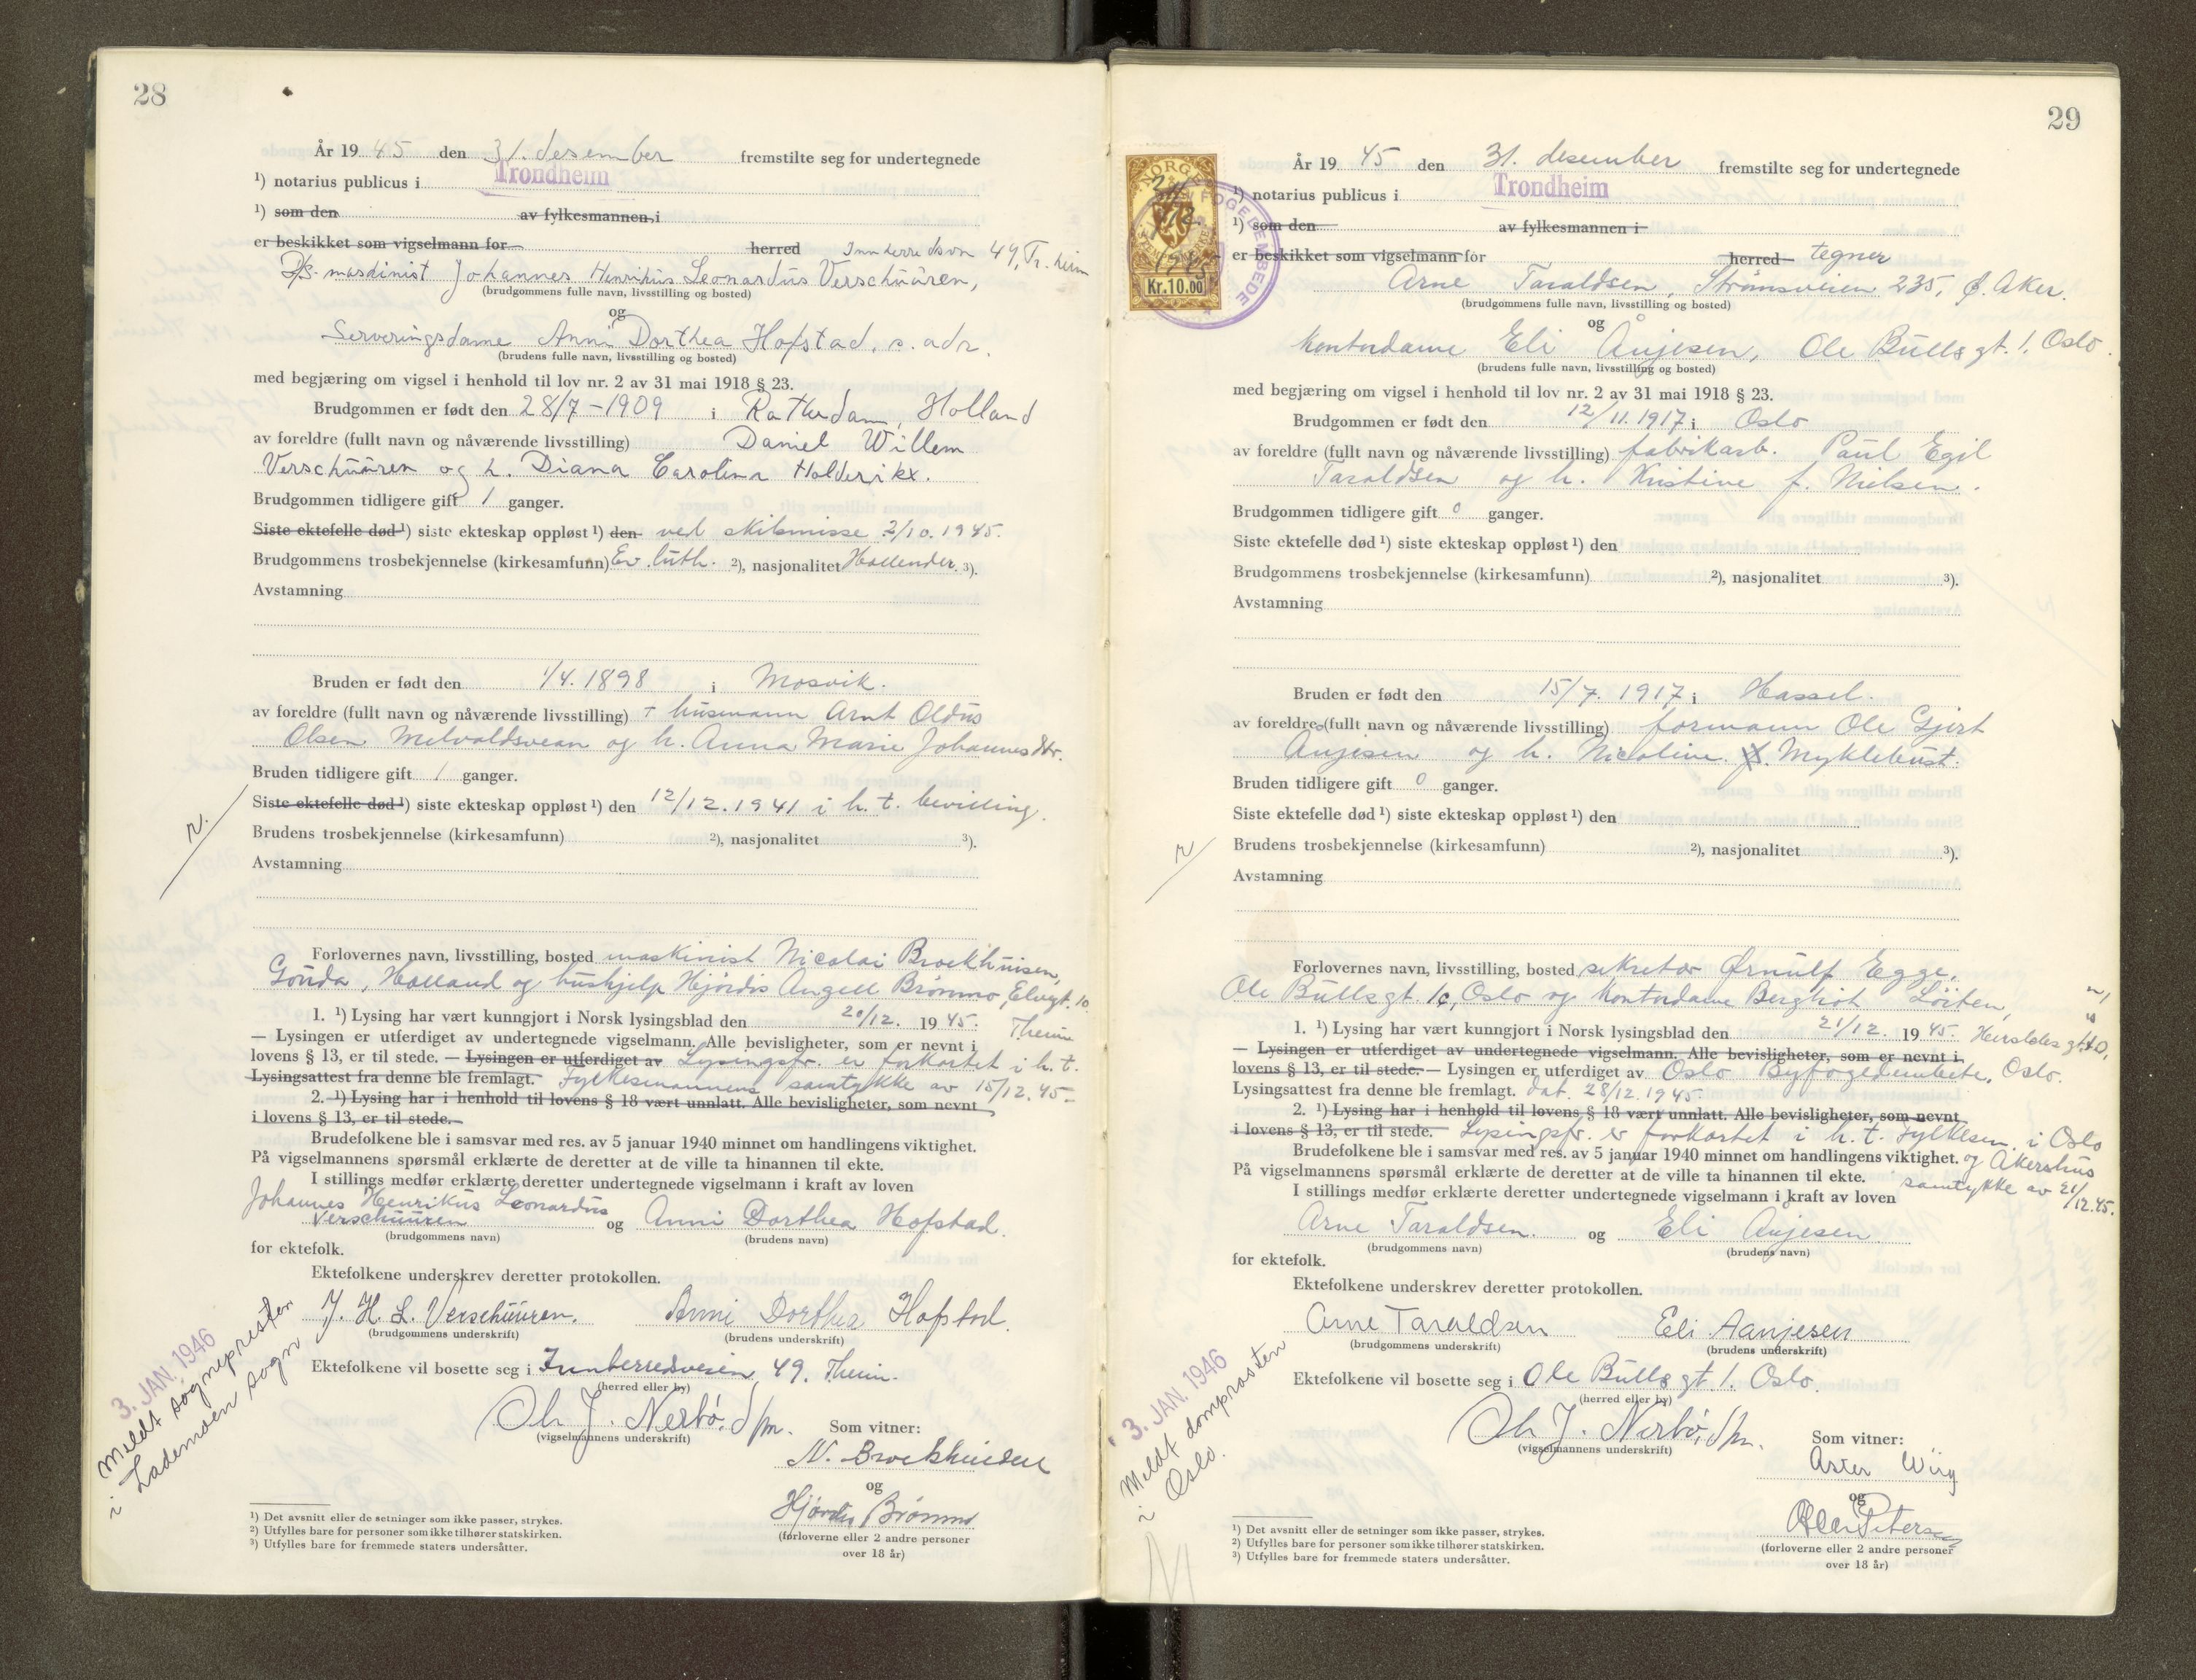 28
År 19 45 den 31. desember fremstilte seg for undertegnede
1) notarius publicus i Trondheim
1) som den av fylkesmannen, i
er beskikket som vigselmann for herred Innherredsvn 49, Tr.heim
maskinist Johannes Henrikus Leonardus Verschuuren,
(brudgommens fulle navn, livsstilling og bosted)
og
Serveringsdame Anni Dorthea Hofstad, s. adr.
(brudens fulle navn, livsstilling og bosted)
med begjæring om vigsel i henhold til lov nr. 2 av 31 mai 1918 § 23.
Brudgommen er født den 28/7-1909 i Rotterdam, Holland
av foreldre (fullt navn og nåværende livsstilling) Daniel Willem
Verschuuren og h. Diana Carolina Holderikx.
Brudgommen tidligere gift 1 ganger.
Siste ektefelle død 1) siste ekteskap oppløst 1) den ved skilsmisse 2/10.1945.
Brudgommens trosbekjennelse (kirkesamfunn) Ev. luth. 2), nasjonalitet Hollender. 3).
Avstamning
Bruden er født den 1/4.1898 i Mosvik.
av foreldre (fullt navn og nåværende livsstilling) + husmann Arnt Oldus
Olsen Melvaldsvean og h. Anna Marie Johannesdtr.
Bruden tidligere gift 1 ganger.
Siste ektefelle død 1) siste ekteskap oppløst 1) den 12/12.1941 i h. t. bevilling.
r.
Brudens trosbekjennelse (kirkesamfunn) 2), nasjonalitet 3).
Avstamning
Forlovernes navn, livsstilling, bosted maskinist Nicolai Broekhuisen,
Gouda, Holland og hushjelp Hjördis Angell Brömmo, Elvegt. 10
1. 1) Lysing har vært kunngjort i Norsk lysingsblad den 20/12. 1945. Theim
— Lysingen er utferdiget av undertegnede vigselmann. Alle bevisligheter, som er nevnt i
lovens § 13, er til stede. — Lysingen er utferdiget av Lysingsfr. er forkortet i h. t.
Lysingsattest fra denne ble fremlagt. Fylkesmannens samtykke av 15/12.45.
2. 1) Lysing har i henhold til lovens § 18 vært unnlatt. Alle bevisligheter, som nevnt
i lovens § 13, er til stede.
Brudefolkene ble i samsvar med res. av 5 januar 1940 minnet om handlingens viktighet.
På vigselmannens spørsmål erklærte de deretter at de ville ta hinannen til ekte.
I stillings medfør erklærte deretter undertegnede vigselmann i kraft av loven
Johannes Henrikus Leonardus
Verschuuren og Anni Dorthea Hofstad.
(brudgommens navn) (brudens navn)
for ektefolk.
Ektefolkene underskrev deretter protokollen.
J. H. L. Verschuuren. Anni Dorthea Hofstad.
(brudgommens underskrift) (brudens underskrift)
Ektefolkene vil bosette seg i Innherredsveien 49, Theim.
(herred eller by)
Ole J. Nerbö, d/m.
(vigselmannens underskrift)
Som vitner:
N. Broekhuisen
og
Hjördis Brömmo
(forloverne eller 2 andre personer
over 18 år)
3. JAN. 1946
Meldt sogneprester
i Lademoen sogn
1) Det avsnitt eller de setninger som ikke passer, strykes.
2) Utfylles bare for personer som ikke tilhører statskirken.
3) Utfylles bare for fremmede staters undersåtter.
29
NORGE
Kr.10.00
År 19 45 den 31. desember fremstilte seg for undertegnede
1) notarius publicus i Trondheim
1) som den av fylkesmannen i
er beskikket som vigselmann for herred tegner
Arne Taraldsen, Strömsveien 235, Ø. Aker.
(brudgommens fulle navn, livsstilling og bosted)
og
Kontordame Eli Ånjesen, Ole Bulls gt. 1. Oslo.
(brudens fulle navn, livsstilling og bosted)
med begjæring om vigsel i henhold til lov nr. 2 av 31 mai 1918 § 23.
Brudgommen er født den 12/11.1917 i Oslo
av foreldre (fullt navn og nåværende livsstilling) fabrikarb. Paul Egil
Taraldsen og h. Kristine f. Nielsen.
Brudgommen tidligere gift 0 ganger.
Siste ektefelle død 1) siste ekteskap oppløst 1) den
Brudgommens trosbekjennelse (kirkesamfunn) 2), nasjonalitet 3).
Avstamning
Bruden er født den 15/7. 1917 i Hassel.
av foreldre (fullt navn og nåværende livsstilling) formann Ole Gjert
Ånjesen og h. Nicoline f. Myklebust.
Bruden tidligere gift 0 ganger.
Siste ektefelle død 1) siste ekteskap oppløst 1) den
r
Brudens trosbekjennelse (kirkesamfunn) 2), nasjonalitet 3).
Avstamning
Forlovernes navn, livsstilling, bosted sekretær Ørnulf Egge,
Ole Bulls gt. 1c, Oslo og Kontordame Bergliot Löiten,
1. 1) Lysing har vært kunngjort i Norsk lysingsblad den 21/12. 1945.
— Lysingen er utferdiget av undertegnede vigselmann. Alle bevisligheter, som er nevnt i
lovens § 13, er til stede. — Lysingen er utferdiget av Oslo Byfogedembete, Oslo.
Lysingsattest fra denne ble fremlagt. dat. 28/12.1945.
2. 1) Lysing har i henhold til lovens § 18 vært unnlatt. Alle bevisligheter, som nevnt
i lovens § 13, er til stede. Lysingsfr. er forkortet i h. t. Fylkesm. i Oslo
og Akershus
samtykke av 21/12.45.
Brudefolkene ble i samsvar med res. av 5 januar 1940 minnet om handlingens viktighet.
På vigselmannens spørsmål erklærte de deretter at de ville ta hinannen til ekte.
I stillings medfør erklærte deretter undertegnede vigselmann i kraft av loven
Arne Taraldsen. og Eli Ånjesen
(brudgommens navn) (brudens navn)
for ektefolk.
Ektefolkene underskrev deretter protokollen.
Arne Taraldsen Eli Aanjesen
(brudgommens underskrift) (brudens underskrift)
Ektefolkene vil bosette seg i Ole Bulls gt. 1. Oslo.
(herred eller by)
Ole J. Nerbö, d/m.
(vigselmannens underskrift)
Som vitner:
Aster Wiig
og
(forloverne eller 2 andre personer
over 18 år)
3. JAN. 1946
Meldt domprosten
i Oslo.
1) Det avsnitt eller de setninger som ikke passer, strykes.
2) Utfylles bare for personer som ikke tilhører statskirken.
3) Utfylles bare for fremmede staters undersåtter.